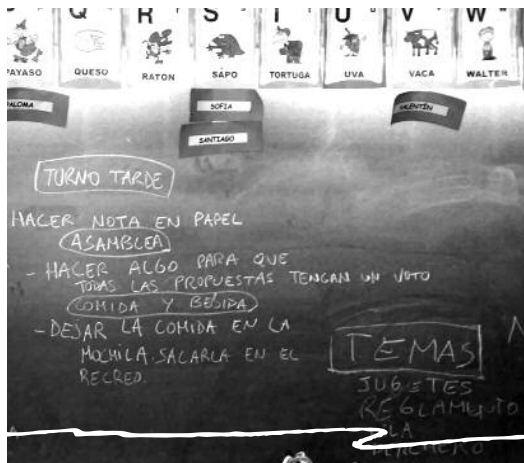 Q R S T U V W
PAYASO QUESO RATON SAPO TORTUGA UVA VACA WALTER
PALOMA SOFIA VALENTÍN
SANTIAGO
TURNO TARDE
HACER NOTA EN PAPEL
ASAMBLEA
- HACER ALGO PARA QUE
TODAS LAS PROPUESTAS TENGAN UN VOTO
COMIDA Y BEBIDA
- DEJAR LA COMIDA EN LA
MOCHILA. SACARLA EN EL
RECREO.
TEMAS
JUGETES
REGLAMENTO
PERCHERO